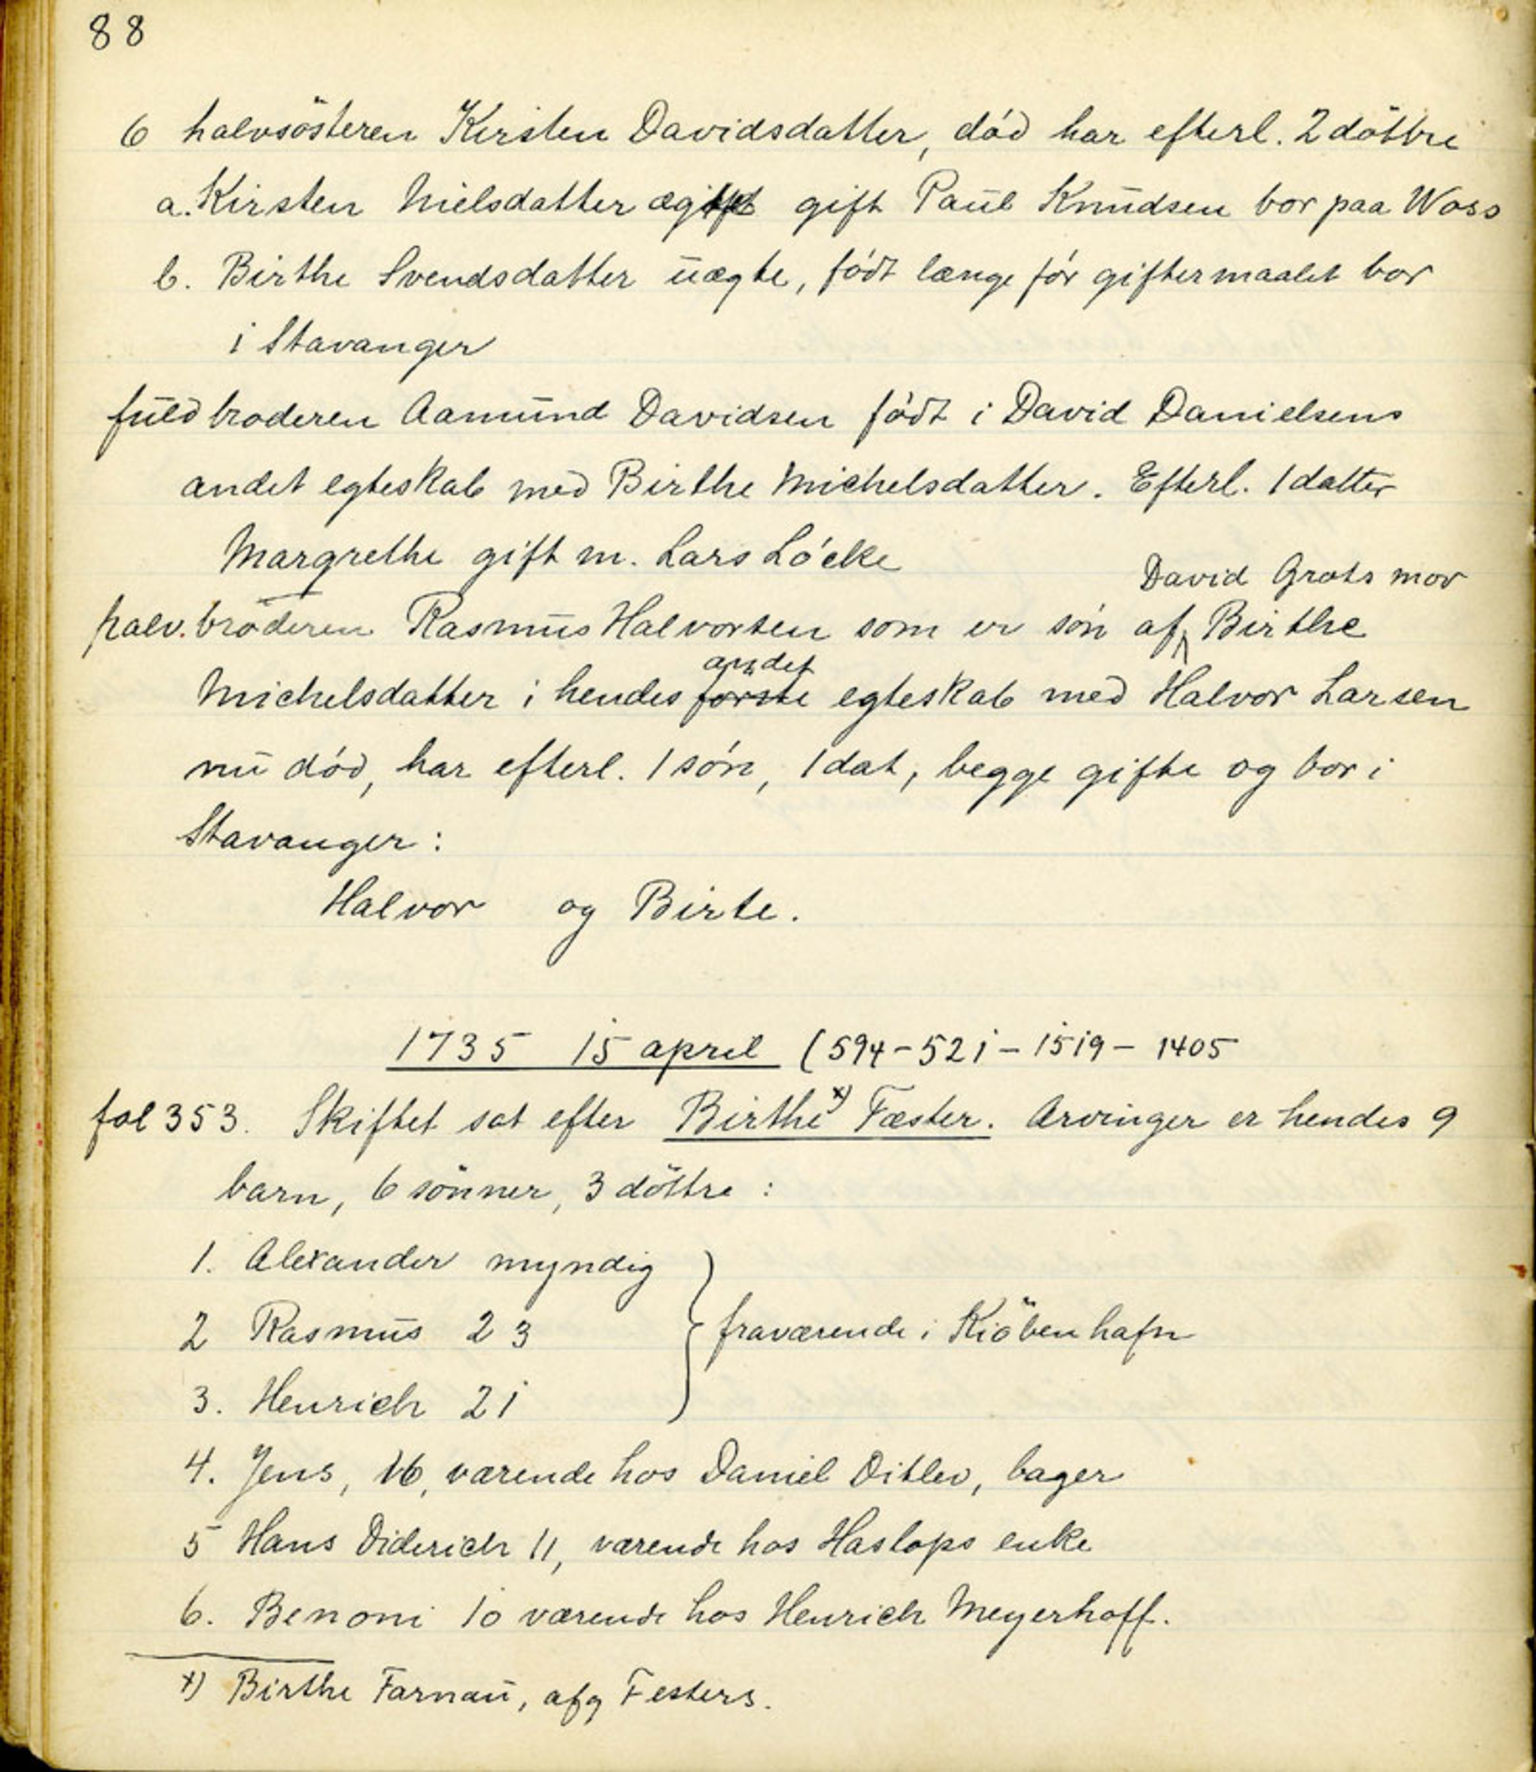 88
6 halvsösteren Kirsten Davidsdatter, död har efterl. 2 döttre
a. Kirsten Nielsdatter gift Paul Knudsen bor paa Woss
b. Birthe Svendsdatter uægte, född længe før giftermaalet bor
i Stavanger
fuldbroderen Aamund Davidsen född i David Danielsens
andet egteskab med Birthe Michelsdatter. Efterl. 1 datter
Margrethe gift m. Lars Löcke
David Grots mor
halv.broderen Rasmus Halvorsen som er søn af Birthe
andet
Michelsdatter i hendes første egteskab med Halvor Larsen
nu död, har efterl. 1 søn, 1 dat, begge gifte og bor i
Stavanger:
Halvor og Birte.
1735 15 april (594-521-1519-1405
fol 353. Skiftet sat efter Birthe x) Fæster. Arvinger er hendes 9
barn, 6 sönner, 3 döttre:
1. Alexander myndig
2 Rasmus 23 } fraværende i Kiöbenhafn
3. Henrich 21
4. Jens, 16, værende hos Daniel Ditlev, bager
5 Hans Diderich 11, værende hos Haslops enke
6. Benoni 10 værende hos Henrich Meyerhoff.
x) Birthe Farnau, afg Festers.